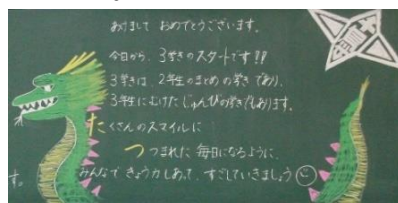 あけまして おめでとうございます。
今日から、3学きのスタートです!!
3学きは、2年生のまとめの学きであり、
3年生にむけた じゅんびの学きでもあります。
たくさんのスマイルに
つつまれた 毎日になるように、
みんなで きょう力しあって、すごしていきましょう
す。